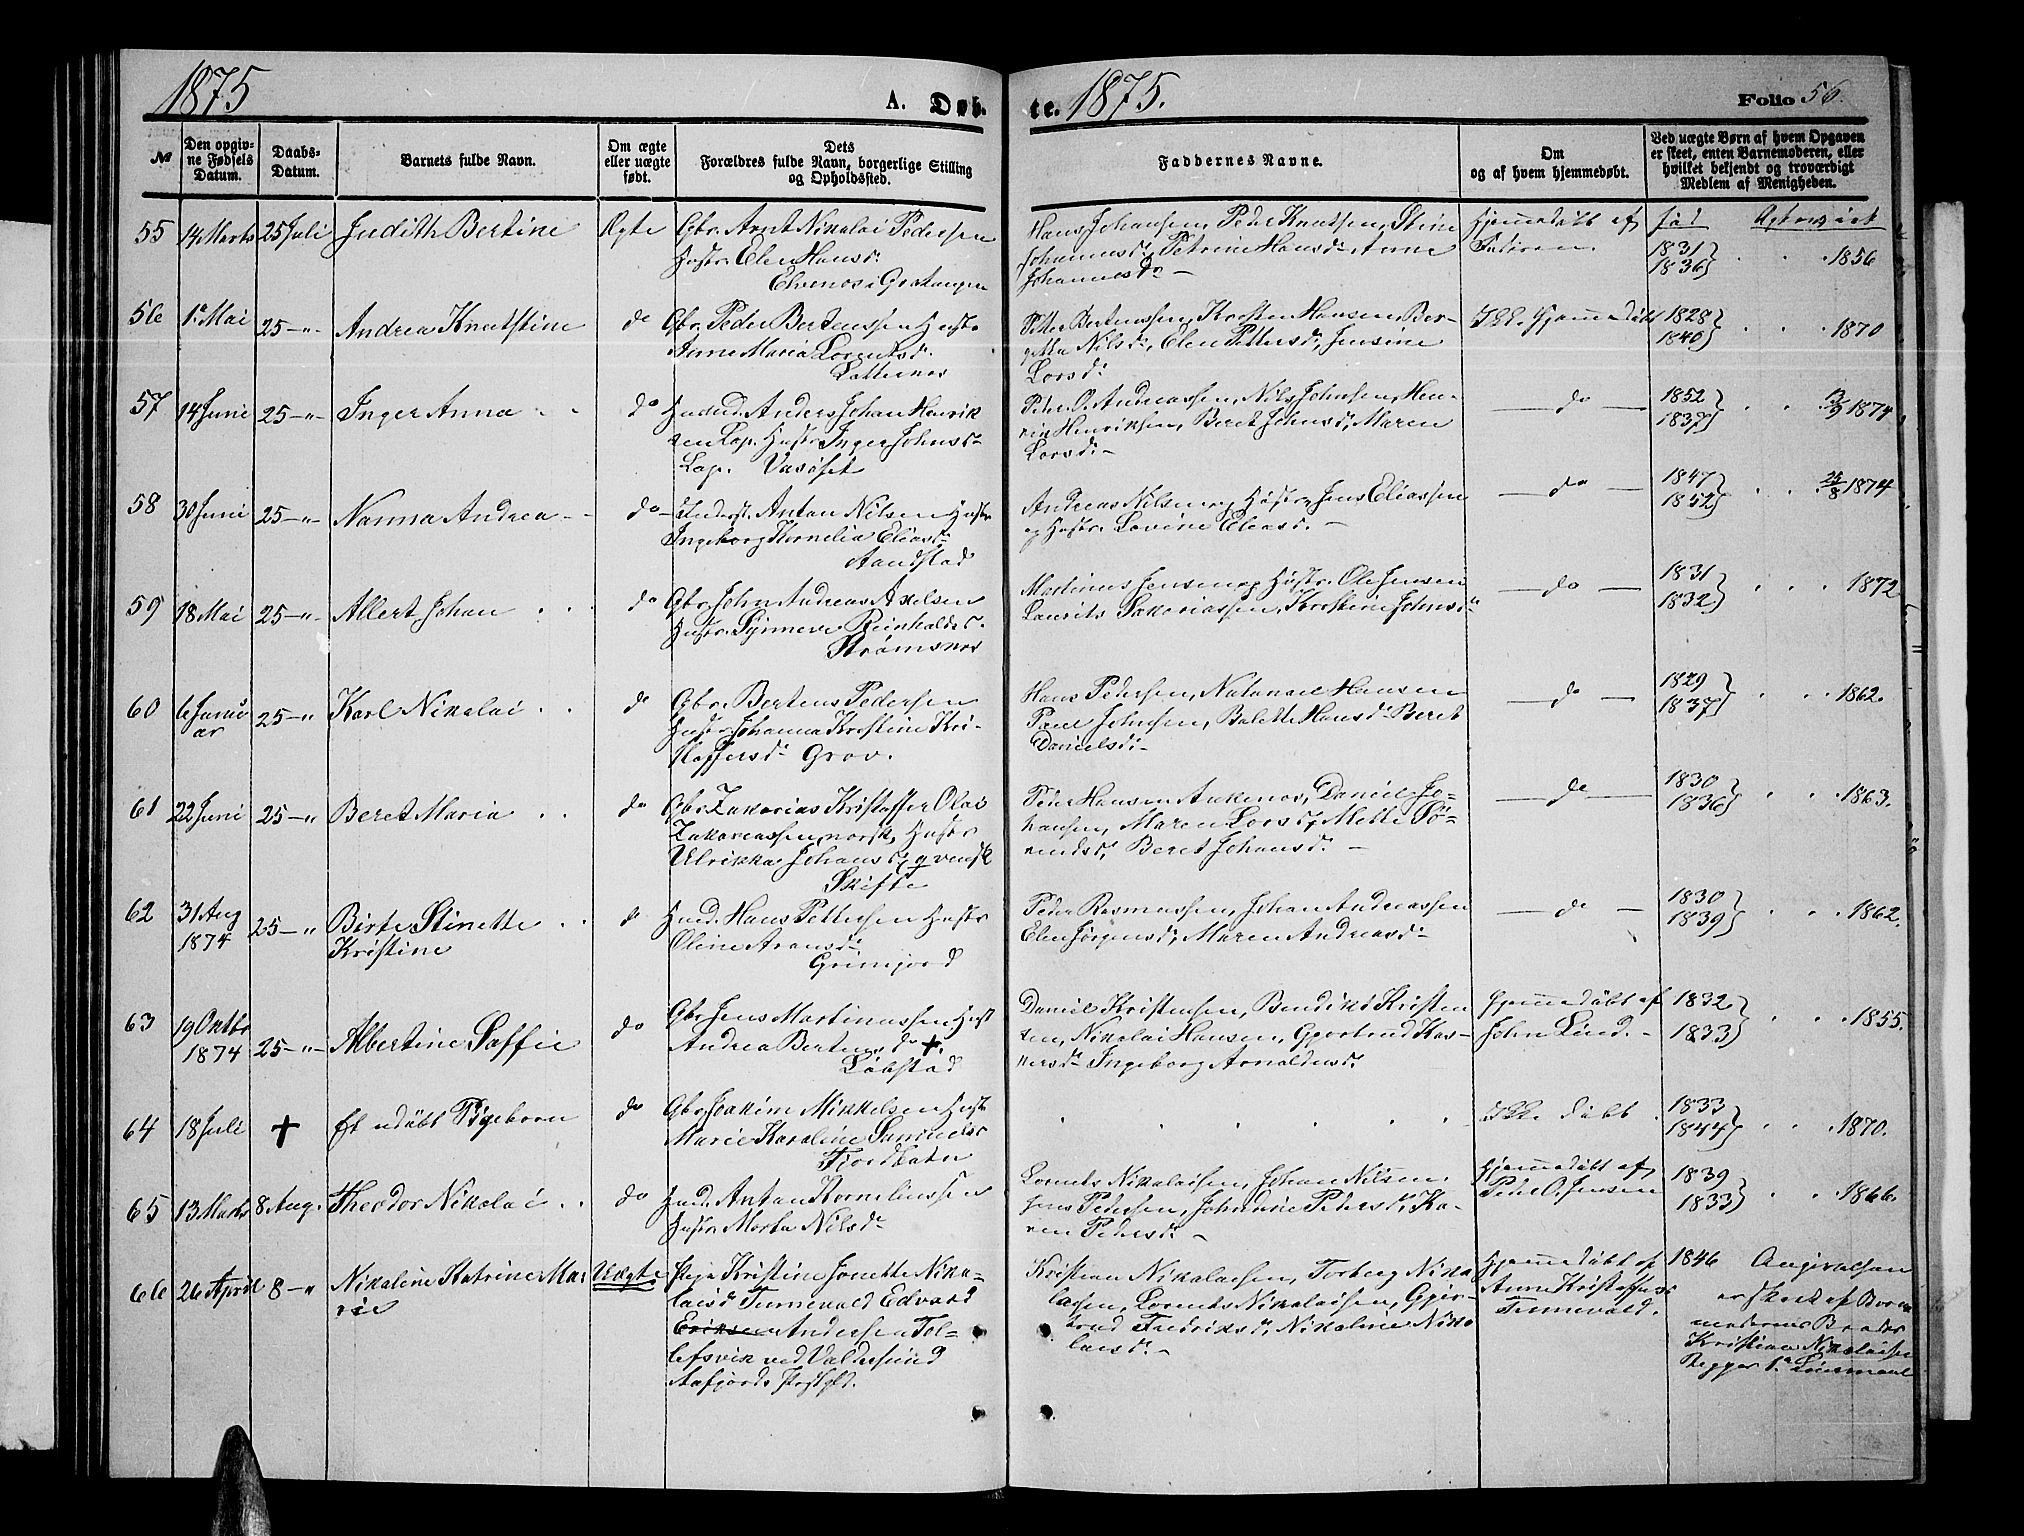 1875
A. Døb-
te. 1875.
Folio 56.
№
Den opgiv-
ne Fødsels
Datum.
Daabs-
Datum.
Barnets fulde Navn.
Om ægte
eller uægte
født.
Dets
Forældres fulde Navn, borgerlige Stilling
og Opholdssted.
Faddernes Navne.
Om
og af hvem hjemmedøbt.
Ved uægte Børn af hvem Opgaven
er skeet, enten Barnemoderen, eller
hvilket bekjendt og troværdigt
Medlem af Menigheden.
55
14 Marts
25 Juli
Judith Bertine
Ægte
Gbr. Arnt Nikolai Pedersen
Hustr. Elen Hansd.
Elvenes i Gratangen
Hans Johansen, Peder Knutsen, Stine
Johannesd. Petrine Hansd. Anne
Johannesd. —
Hjemmedøbt af
Faderen.
fød
1831
1836
1856
56
1ª Mai
25 — "
Andrea Knutstine
do
Gbr. Peder Bertenssen Hustr.
Anne Maria Lorentsd.
Petter Bertenssen, Karsten Hansen, Ber-
getta Nilsd., Elen Pettersd., Jensine
Larsd.
Ikke hjemmedøbt
1828
1840
1870
57
14 Juni
25 — "
Inger Anna
do
Anders Johan Henrik
sen Lap. Hustr. Inger Johnsd.
Lap. Vasøset
Peder O. Andreassen, Nils Johnsen, Hen-
rik Henriksen, Beret Johnsd., Maren
Larsd. —
— do —
1852
1837
1874
58
30 Juni
25 — "
Nanna Andrea
do
Anton Nilsen Hustr
Ingeborg Kornelia Eliasd.
Aandstad
Andreas Nilsen og Hustr, Jens Eliassen
og Hustr. Lovine Eliasd. —
— do —
1847
1852
25/8 1874
59
18 Mai
25 — "
Albert Johan
do
Gbr. John Andreas Axelsen
Hustr. Synneve Reinholdsd.
Strømsnes
Martinus Jensen og Hustr. Ole Jensen
Laurits Sakariassen, Kirstine Johnsd.
— do —
1831
1832
1872
60
6 Janu
ar
25 — "
Karl Nikolai
do
Gbr. Bertens Pedersen
Hustr. Johanna Kristine Kri-
stoffersd. Grov.
Hans Pedersen, Natanael Hansen
Paul Johnsen, Balette Hansd. Beret
Danielsd. —
— do —
1829
1837
1862.
61
22 Juni
25 — "
Beret Maria
do
Gbr. Zakarias Kristoffer Olai
Zakariassen, norsk, Hustr
Ulrikka Johansd., qvensk
Skifte
Peder Hansen Ankenes, Daniel Jo-
hansen, Maren Larsd, Mette Sö-
rensd, Beret Johansd. —
— do —
1830
1836
1863.
62
31 Aug
1874
25 — "
Birte Stinette
Kristine
do
Hans Pettersen Hustr
Oline Aronsd.
Grimjord
Peder Rasmussen, Johan Andreassen
Elen Jörgensd., Maren Andreasd. —
— do —
1830
1839
1862.
63
19 Oktbr
1874
25 — "
Albertine Soffie
do
Gbr. Jens Martinussen Hust
Andrea Bertensd +.
Löbstad
Daniel Kristensen, Bendikt Kristen
sen, Nikolai Hansen, Gjertrud Kas-
persd. Ingeborg Arnoldusd.
Hjemmedøbt af
John Lind. —
1832
1833
1855.
64
18 Juli
+
Et udöbt Pigebarn
do
Gbr. Joakim Mikkelsen Hustr
Marie Karoline Samuelsd
Fjordbotn
Ikke döbt
1833
1844
1870.
65
13 Marts
8 Aug.
Theodor Nikolai
do
Anton Korneliussen
Hustr. Marta Nilsd.
Lorents Nikolaisen, Johan Nilsen,
Jens Pedersen, Johanne Pedersd., Ka-
ren Pedersd. —
Hjemmedøbt af
Peder O. Jensen
1839
1833
1866.
66
26 April
8 — "
Nikoline Katrine Ma
rie
Uægte
Pige Kristine Jonette Niko-
laisd Tennevold Edvard
Eriksen Andersen Tol-
lefsvik ved Valdersund
Aafjords Prstgld.
Kristian Nikolaisen, Torberg Niko
laisen, Lorents Nikolaisen, Gjer-
trud Fredriksd., Nikoline Niko
laisd. —
Hjemmedøbt af
Anne Kristoffersd
Tennevold.
1846
Angivelsen
er skeet af Barne
moderens Broder
Kristian Nikolaisen
Begges 1ª Leiermaal